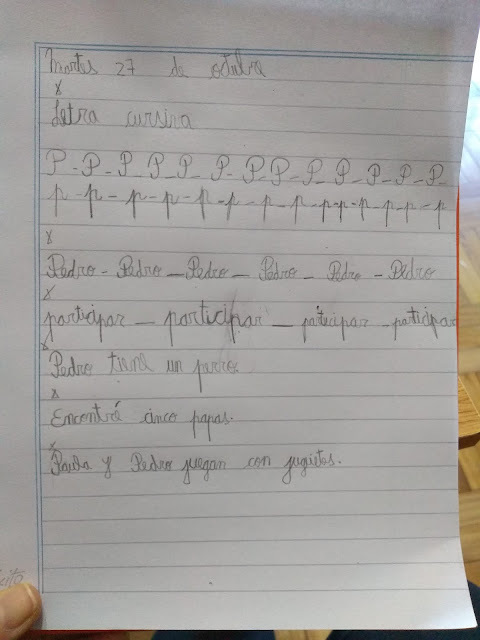 Martes 27 de octubre
x
Letra cursiva
P - P - P - P - P - P - P - P - P - P - P - P - P
p - p - p - p - p - p - p - p - p - p - p - p - p - p
x
Pedro - Pedro - Pedro - Pedro - Pedro - Pedro
x
participar - participar - párticipar - participar
x
Pedro tiene un perro
x
Encontré cinco papas.
x
Paula y Pedro juegan con juguetes.
cito